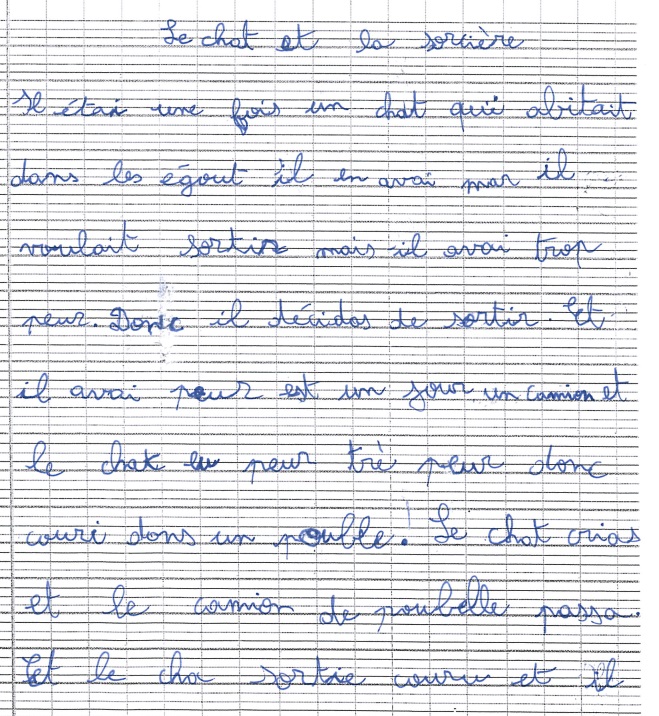 Le chat et la sorcière
Il étai une fois un chat qui abitait
dans les égout il en avai mar il
voulait sortir mais il avai trop
peur. Donc il décidas de sortir. Et
il avai peur est un jour un camion et
le chat eu peur trè peur donc
couri dans un pouble. Le chat crias
et le camion de poubelle passa.
Et le cha sortie couru et il